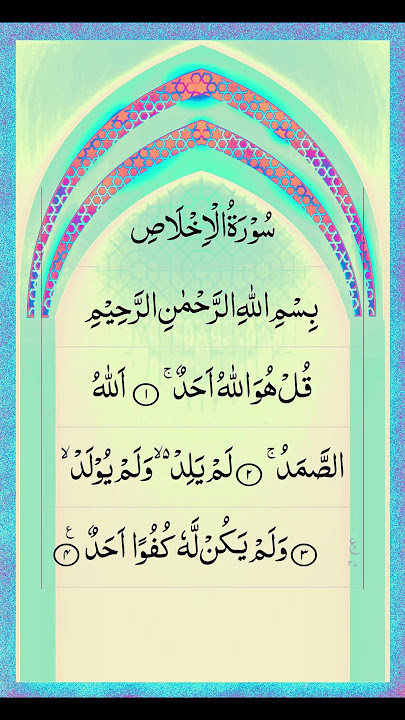 سُوْرَةُ الْاِخْلَاصِ
بِسْمِ اللهِ الرَّحْمٰنِ الرَّحِيْمِ
قُلْ هُوَ اللهُ اَحَدٌ ۚ ۝١ اَللهُ
الصَّمَدُ ۚ ۝٢ لَمْ يَلِدْ ۙ۬ وَلَمْ يُوْلَدْ ۙ
۝٣ وَلَمْ يَكُنْ لَّهٗ كُفُوًا اَحَدٌ ۝٤ ع